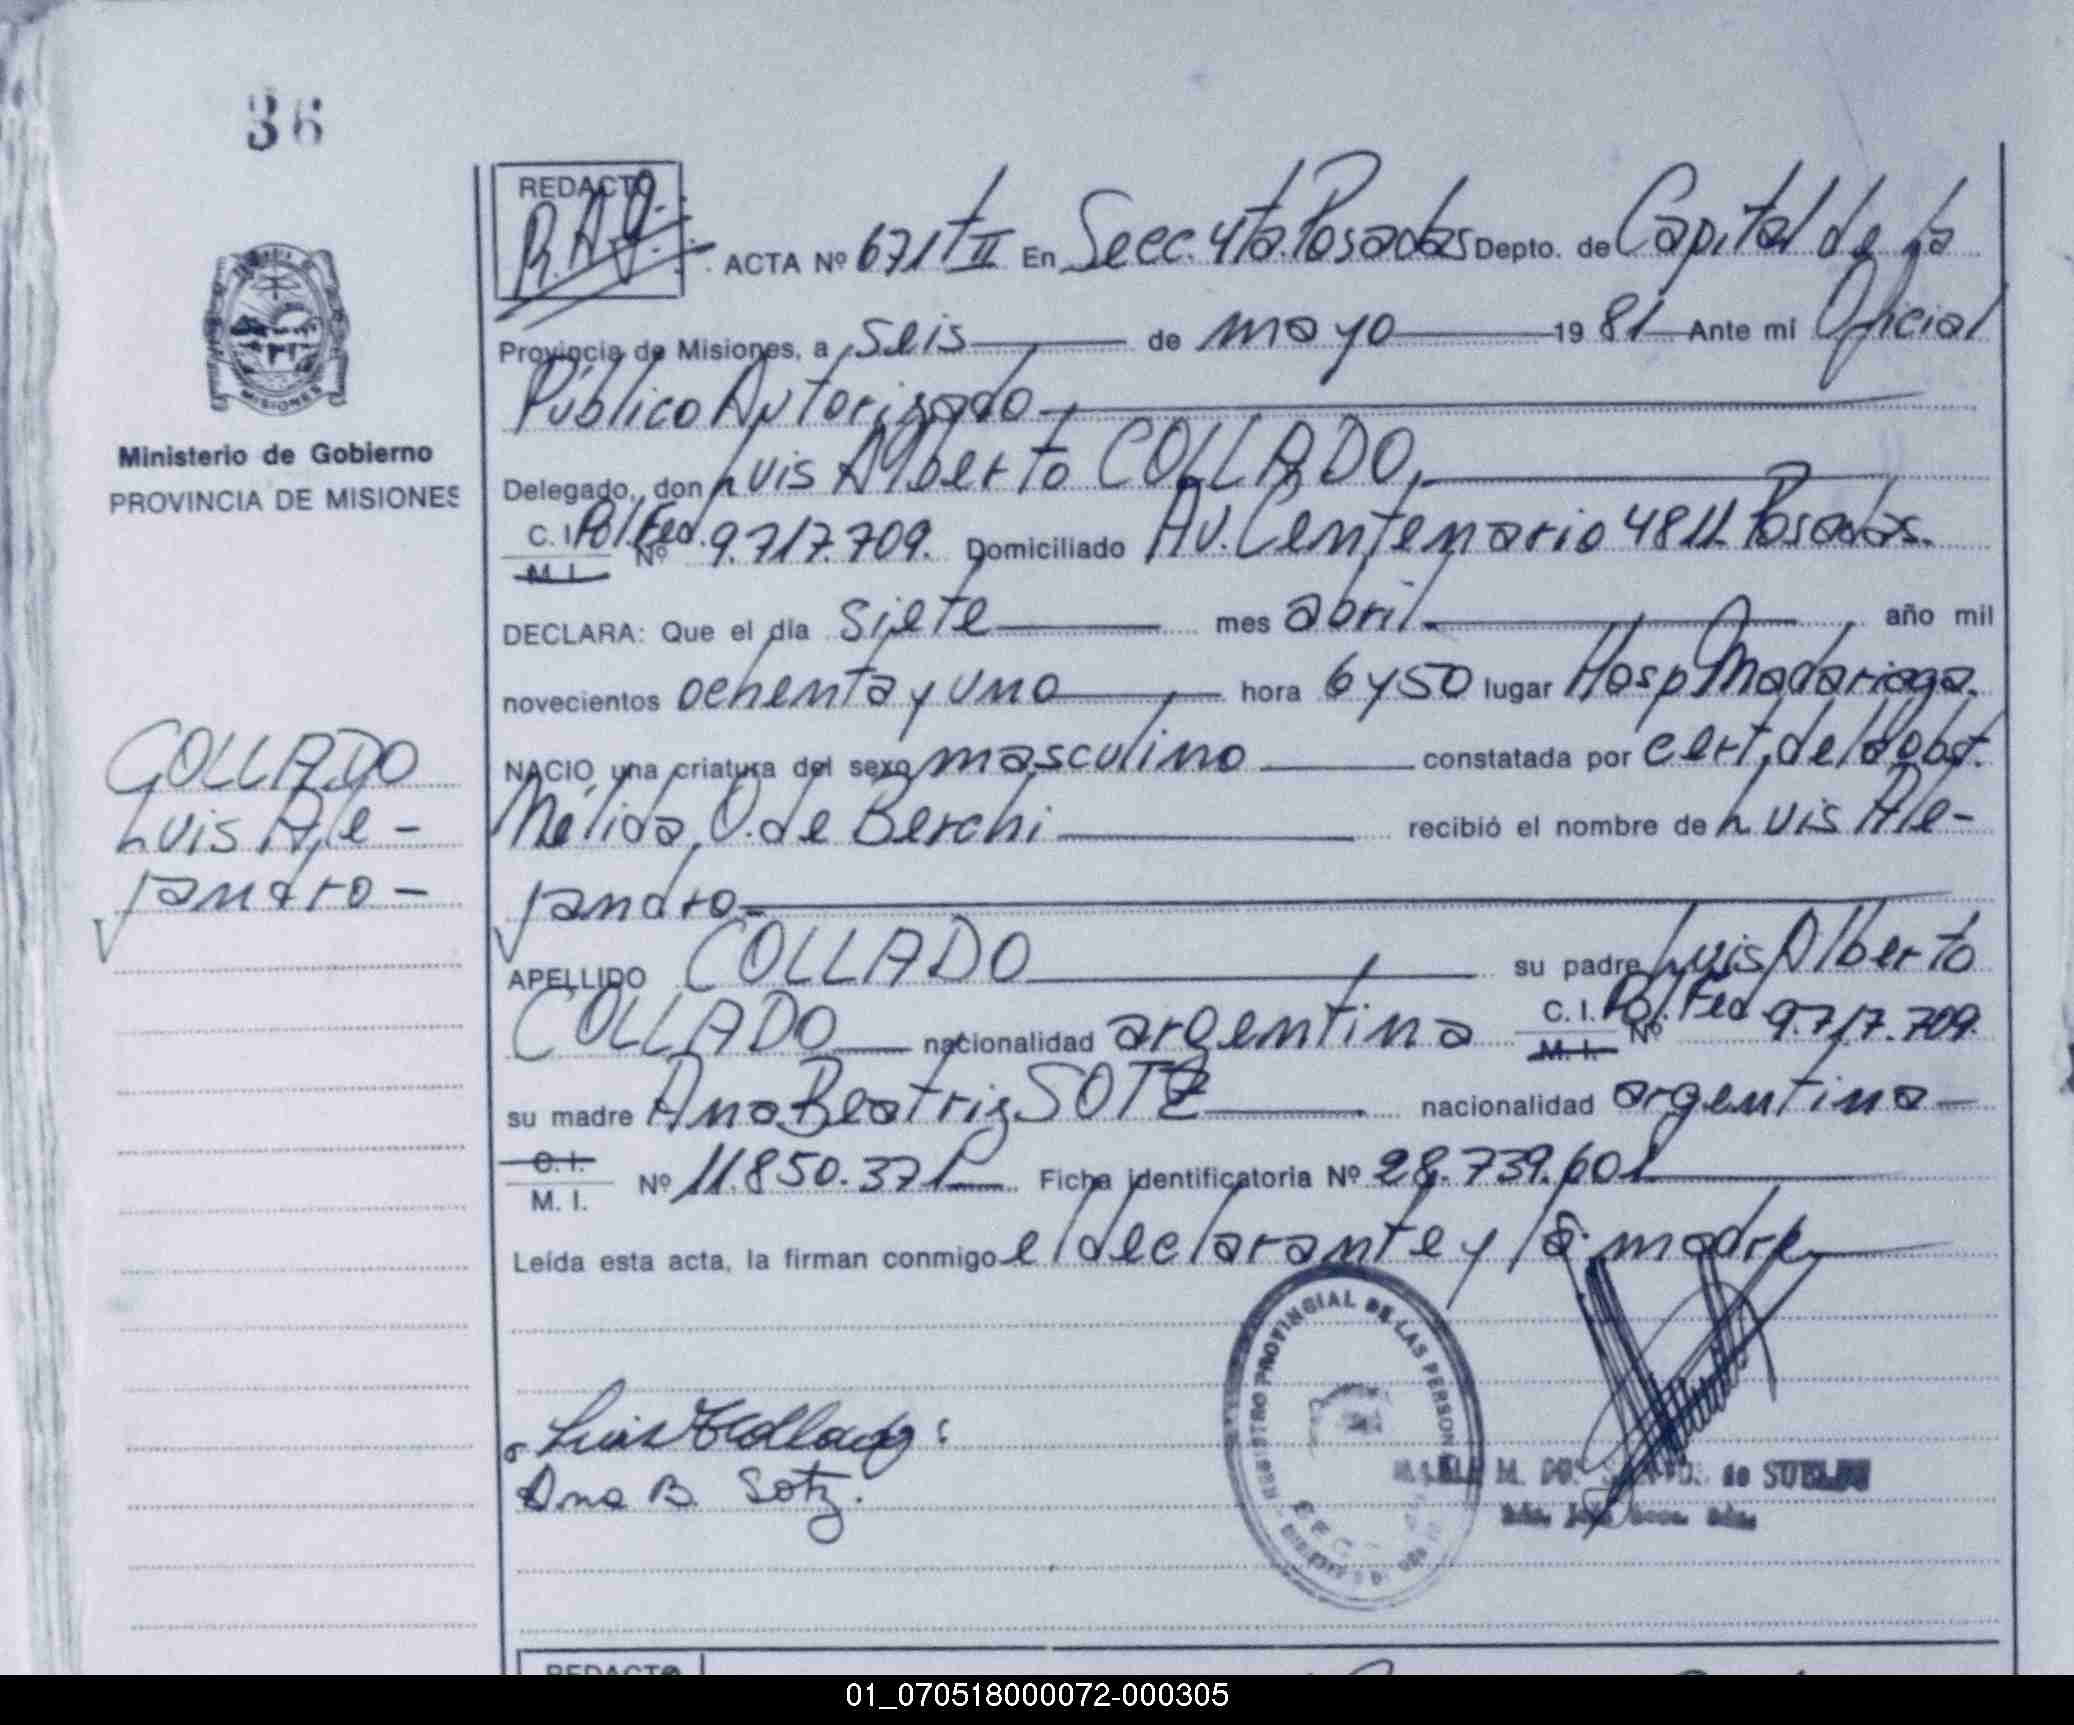 36
REDACTO
R.A.G.
ACTA Nº 671 t II En Secc. 4ta. Posadas Depto. de Capital de la
Provincia de Misiones, a seis de mayo 1981 Ante mi Oficial
Público Autorizado
Ministerio de Gobierno
PROVINCIA DE MISIONES
MISIONES
Delegado, don Luis Alberto COLLADO,
C. I. Pol. Fed. Nº 9.717.709. Domiciliado Av. Centenario 4811. Posadas.
M. I.
DECLARA: Que el día siete mes abril año mil
novecientos ochenta y uno hora 6 y 50 lugar Hosp. Madariaga.
NACIO una criatura del sexo masculino constatada por cert. de la obst.
Mélida O. de Berchi recibió el nombre de Luis Ale-
jandro
COLLADO
Luis Ale-
jandro -
APELLIDO COLLADO su padre Luis Alberto
COLLADO nacionalidad argentina C. I. Pol. Fed Nº 9.717.709.
M. I.
su madre Ana Beatriz SOTZ nacionalidad argentina -
C. I.
M. I. Nº 11.850.371 Ficha identificatoria Nº 28.739.601
Leída esta acta, la firman conmigo el declarante y la madre
REGISTRO PROVINCIAL DE LAS PERSONAS
Luis A Collado
Ana B. Sotz.
M. DOS de SUELDO
REDACTO
01_070518000072-000305